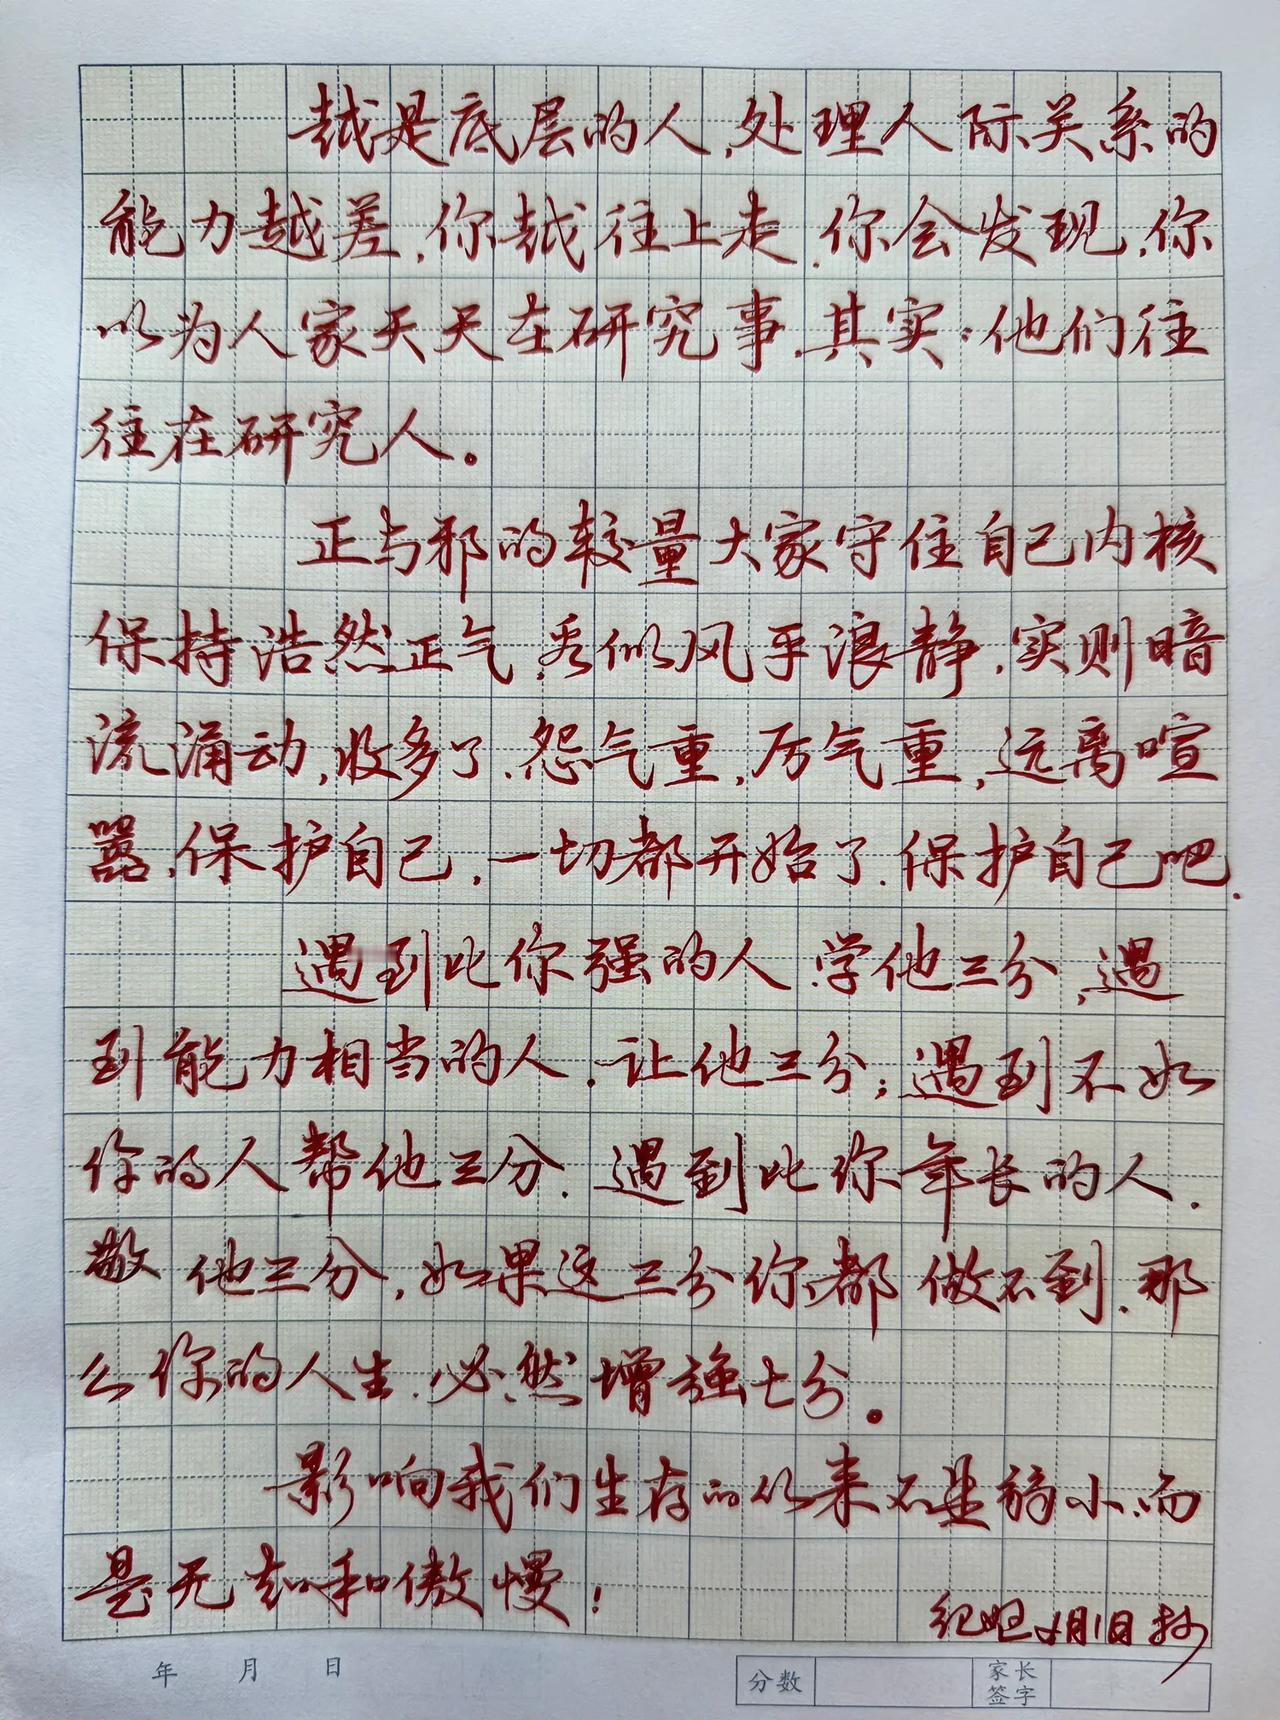 越是底层的人,处理人际关系的
能力越差,你越往上走,你会发现,你
以为人家天天在研究事,其实,他们往
往在研究人。
正与邪的较量大家守住自己内核
保持浩然正气,看似风平浪静,实则暗
流涌动,收多了,怨气重,厉气重,远离喧
嚣,保护自己,一切都开始了,保护自己吧.
遇到比你强的人,学他三分,遇
到能力相当的人,让他三分;遇到不如
你的人帮他三分.遇到比你年长的人,
敬他三分,如果这三分你都做不到,那
么你的人生,必然增强七分。
影响我们生存的从来不是弱小,而
是无知和傲慢!
月1日抄
年 月 日
分数
家长
签字